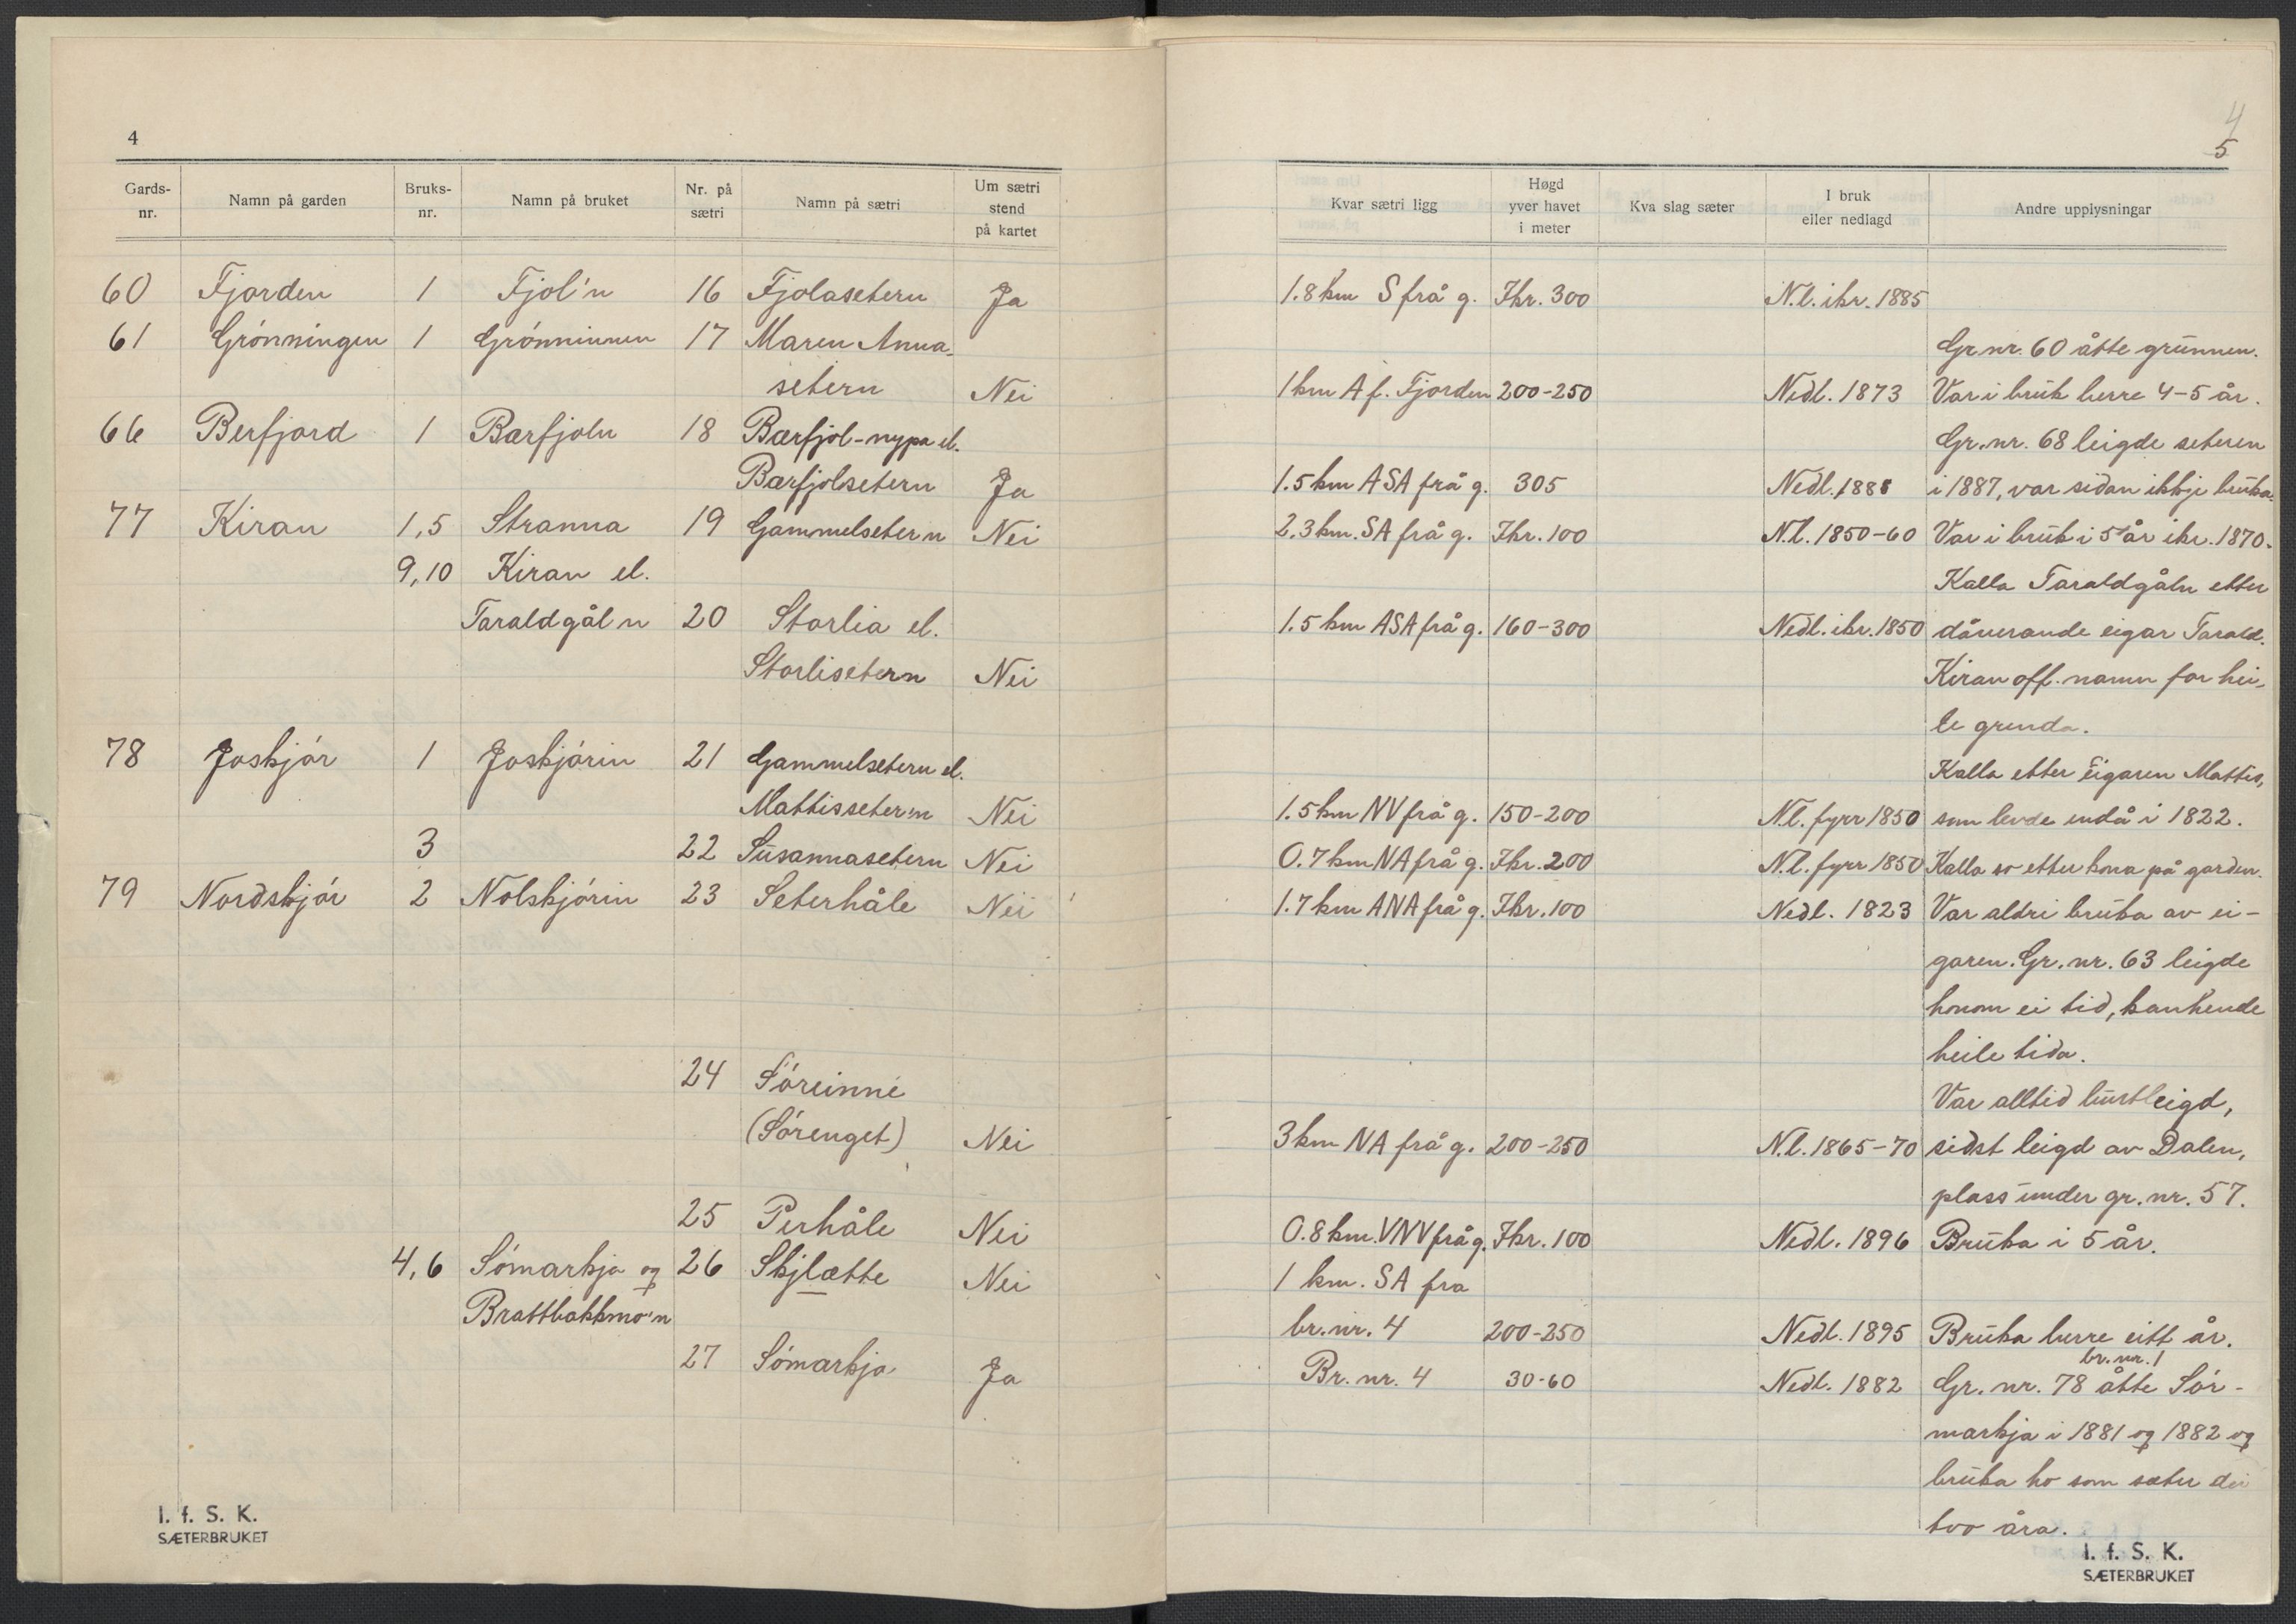 4
Gards-nr. Namn på garden Bruks-nr. Namn på bruket Nr. på sætri Namn på sætri Um sætri stend på kartet
60 Fjorden 1 Fjol'n 16 Fjolasetern Ja
61 Grönningen 1 Grönninnen 17 Maren Anna-
setern Nei
66 Berfjord 1 Bærfjoln 18 Bærfjol-nypa el.
Bærfjolsetern Ja
77 Kiran 1,5 Stranna 19 Gammelsetern Nei
9,10 Kiran el.
Taraldgåln 20 Storlia el.
Storlisetern Nei
78 Joskjór 1 Joskjórin 21 Gammelsetern el.
Mattissetern Nei
3 22 Susannasetern Nei
79 Nordskjór 2 Nolskjórin 23 Seterhåle Nei
24 Sóreinne
(Sórenget) Nei
25 Perhåle Nei
4,6 Sómarkja og 26 Skjlætte Nei
Brattbakkmo'n
27 Sómarkja Ja
I. f. S. K.
SÆTERBRUKET
4
5
Kvar sætri ligg Høgd yver havet i meter Kva slag sæter I bruk eller nedlagd Andre upplysningar
1.8 km S frå g. Ikr. 300 N.l. ikr. 1885
Gr.nr. 60 åtte grunnen.
1 km A f. Fjorden 200-250 Nedl. 1873 Var i bruk berre 4-5 år.
Gr.nr. 68 leigde seteren
1.5 km ASA frå g. 305 Nedl. 1888 i 1887, var sidan ikkje bruka.
2,3 km. SA frå g. Ikr. 100 N.l. 1850-60 Var i bruk i 5 år ikr. 1870.
Kalla Taraldgåln etter
1.5 km ASA frå g. 160-300 Nedl. ikr. 1850 dåverande eigar Tarald.
Kiran off. namn for hei-
le grenda.
Kalla etter eigaren Mattis,
1.5 km NV frå g. 150-200 N.l. fyrr 1850 som levde endå i 1822.
0.7 km NA frå g. Ikr. 200 N.l. fyrr 1850 Kalla so etter kona på garden.
1.7 km ANA frå g. Ikr. 100 Nedl. 1823 Var aldri bruka av ei-
garen. Gr.nr. 63 leigde
honom ei tid, kanhende
heile tida.
Var alltid burtleigd,
3 km NA frå g. 200-250 N.l. 1865-70 sidst leigd av Dalen,
plass under gr.nr. 57.
0.8 km. VNV frå g. Ikr. 100 Nedl. 1896 Bruka i 5 år.
1 km. SA fra
br.nr. 4 200-250 Nedl. 1895 Bruka berre eitt år.
br.nr. 1
Br.nr. 4 30-60 Nedl. 1882 Gr.nr. 78 åtte Sór-
markja i 1881 og 1882 og
bruka ho som sæter dei
tvo åra.
I. f. S. K.
SÆTERBRUKET